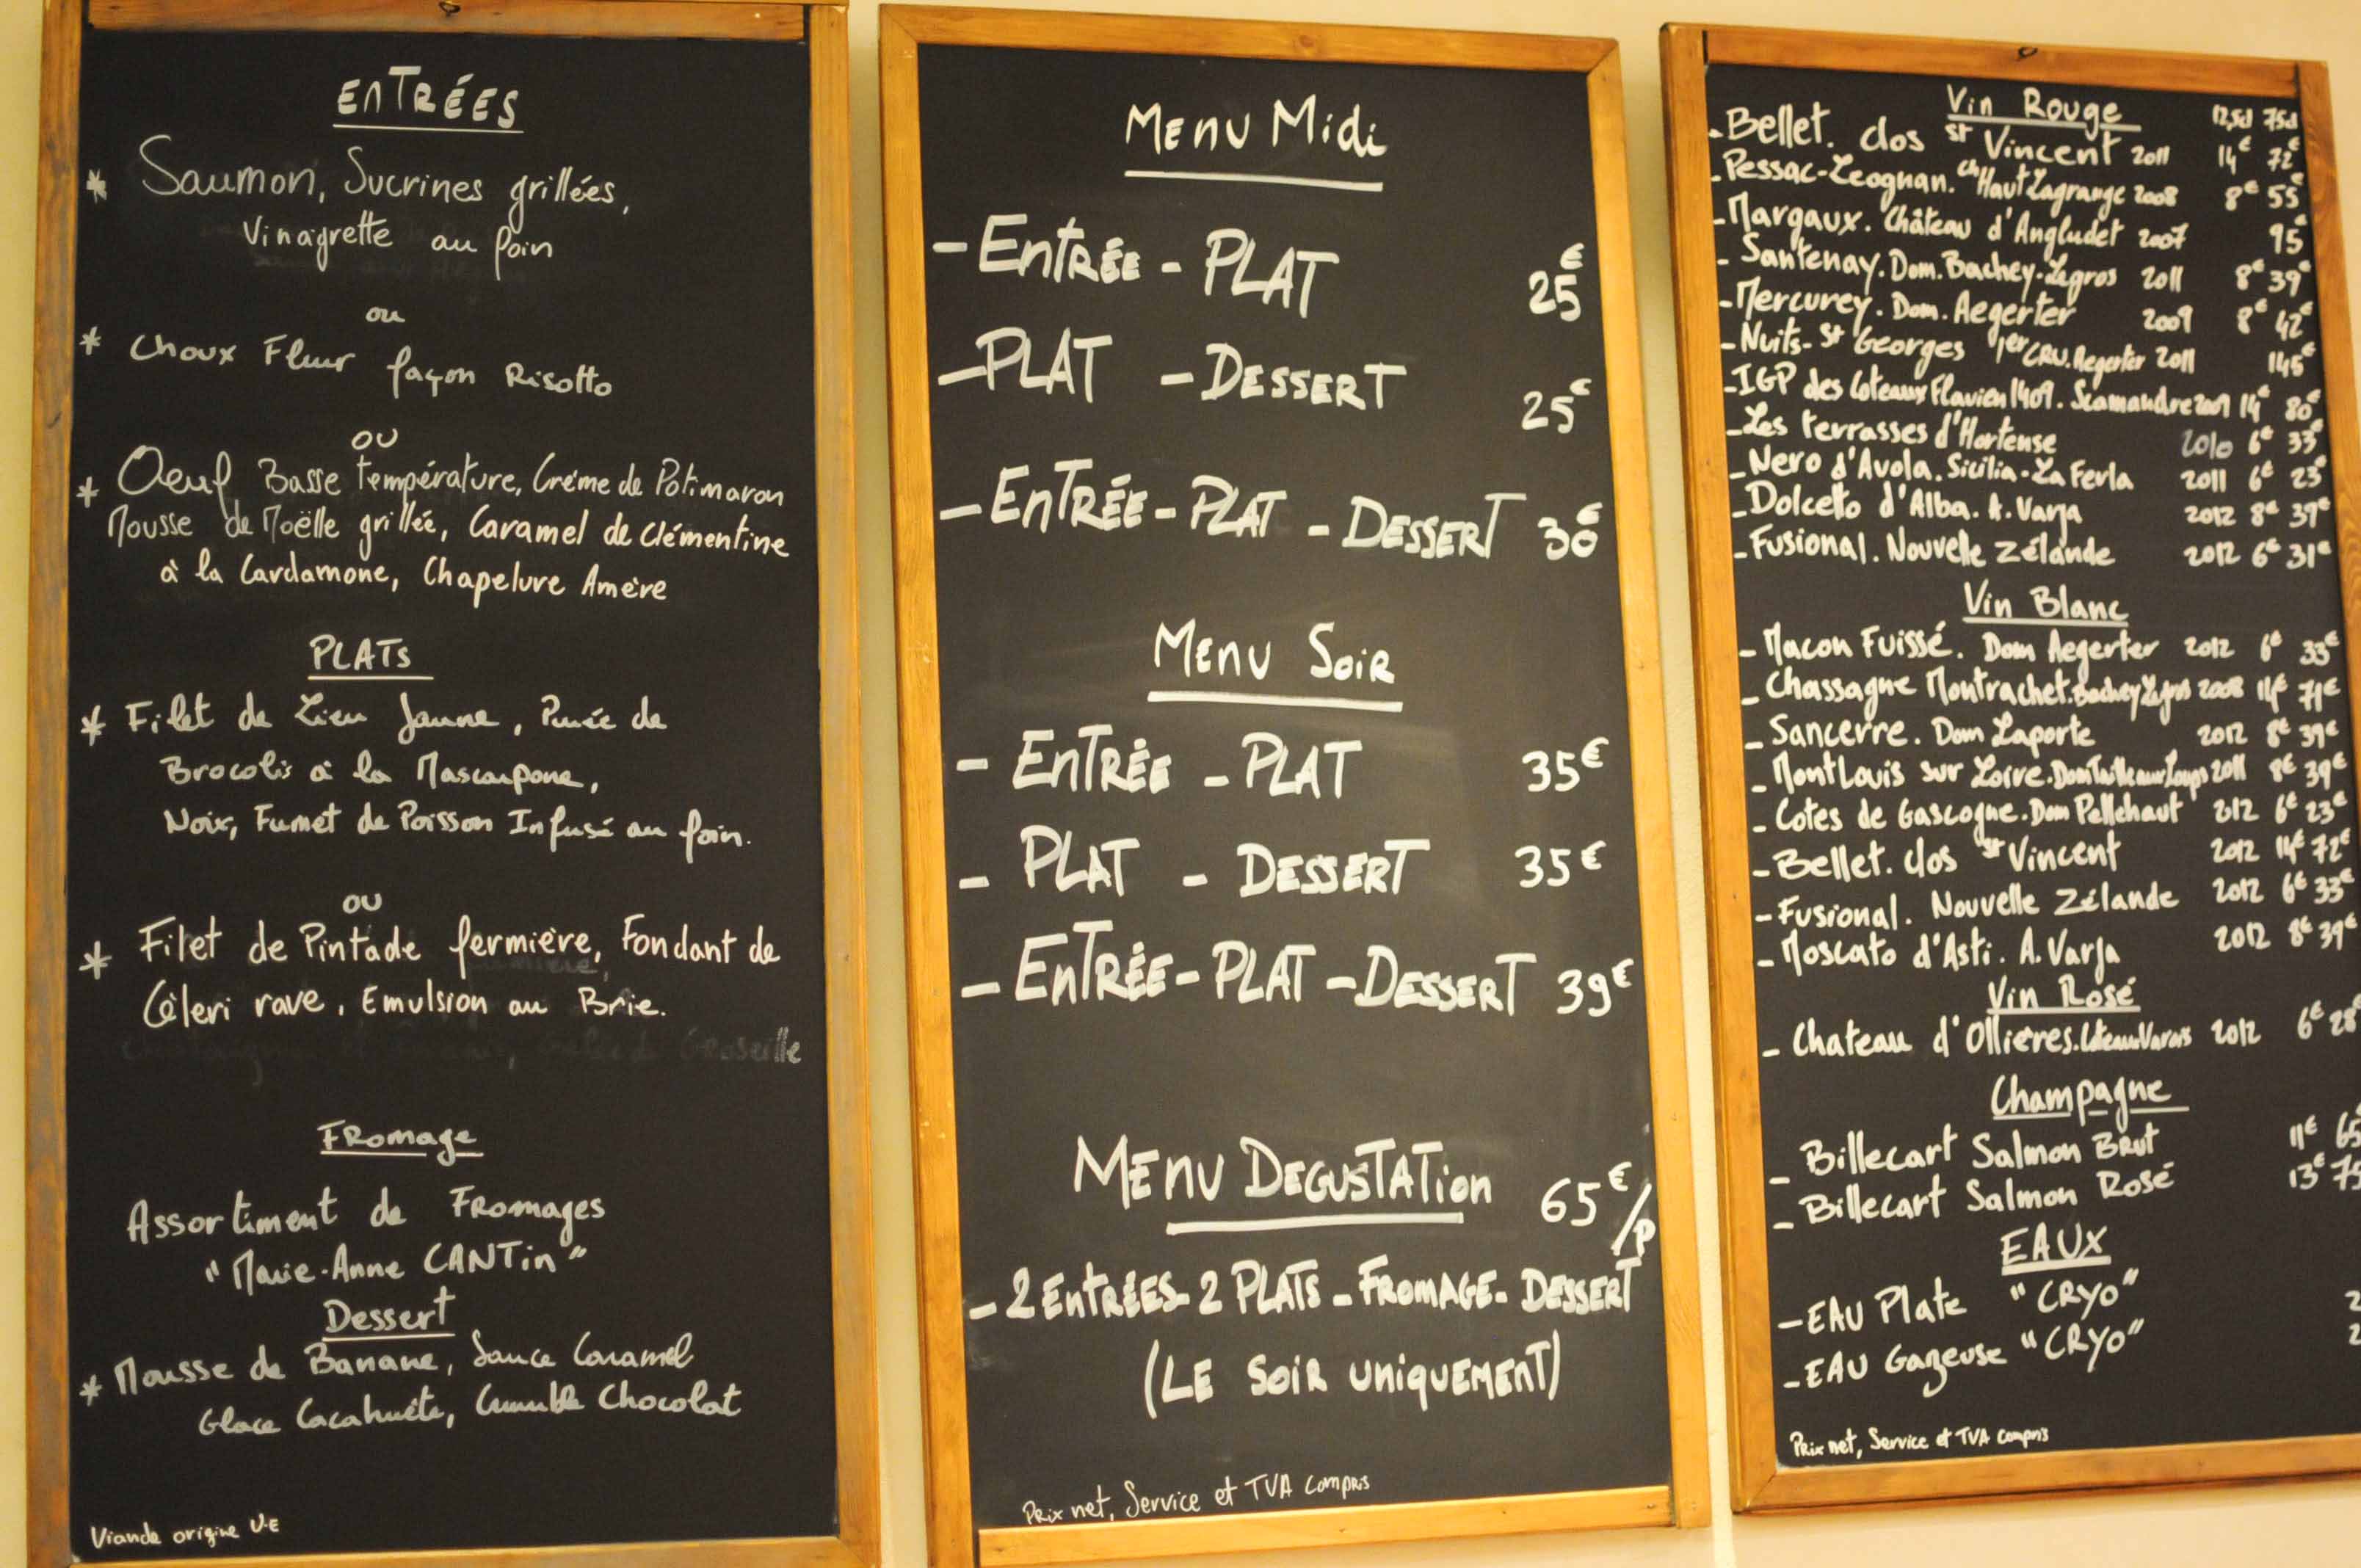 EnTRÉES
* Saumon, Sucrines grillées,
Vinaigrette au foin
ou
* Choux Fleur façon Risotto
ou
* Oeuf Basse température, Crème de Potimaron
Mousse de Moëlle grillée, Caramel de Clémentine
à la Cardamone, Chapelure Amère
PLATs
* Filet de Lieu Jaune, Purée de
Brocolis à la Mascarpone,
Noix, Fumet de Poisson Infusé au foin.
ou
* Filet de Pintade fermière, Fondant de
Céleri rave, Emulsion au Brie.
Groseille
FRomage
Assortiment de FRomages
"Marie-Anne CANTin"
Dessert
* Mousse de Banane, Sauce Caramel
Glace Cacahuète, Crumble Chocolat
Viande origine U-E
MEnU Midi
- EntRÉE - PLAT 25€
- PLAT - DESSERT 25€
- EnTRÉE - PLAT - DESSERT 30€
MEnU SoiR
- EnTRÉE - PLAT 35€
- PLAT - DESSERT 35€
- EnTRÉE - PLAT - DESSERT 39€
MEnU DEGUSTATion 65€/p
- 2 EntRÉES - 2 PLATS - FRoMAGE - DESSERT
(LE SoiR UniQUEMEnT)
PRix net, Service et TVA compRis
Vin Rouge 12,5cl 75cl
- Bellet. clos st Vincent 2011 14€ 72€
- Pessac-Leognan. ch Haut Lagrange 2008 8€ 55€
- Margaux. Château d'Angludet 2007 95€
- Santenay. Dom. Bachey-Legros 2011 8€ 39€
- Mercurey. Dom. Aegerter 2009 8€ 42€
- Nuits-st Georges 1er CRU. Aegerter 2011 145€
- IGP des Coteaux Flavien 1409. Scamandre 2009 14€ 80€
- Les terrasses d'Hortense 2010 6€ 33€
- Nero d'Avola. Sicilia - La Ferla 2011 6€ 23€
- Dolcetto d'Alba. A. Varja 2012 8€ 39€
- Fusional. Nouvelle Zélande 2012 6€ 31€
Vin Blanc
- Macon Fuissé. Dom Aegerter 2012 6€ 33€
- Chassagne Montrachet. Bachey Legros 2008 14€ 71€
- Sancerre. Dom Laporte 2012 8€ 39€
- MontLouis sur Loire. Dom Taille aux Loups 2011 8€ 39€
- Cotes de Gascogne. Dom Pellehaut 2012 6€ 23€
- Bellet. clos st Vincent 2012 14€ 72€
- Fusional. Nouvelle Zélande 2012 6€ 33€
- Moscato d'Asti. A. Varja 2012 8€ 39€
Vin Rosé
- Chateau d'Ollières. Coteaux Varois 2012 6€ 28€
Champagne
- Billecart Salmon Brut 11€ 65
- Billecart Salmon Rosé 13€ 75
EAUx
- EAU Plate "CRYO" 2
- EAU Gazeuse "CRYO" 2
PRix net, Service et TVA compris